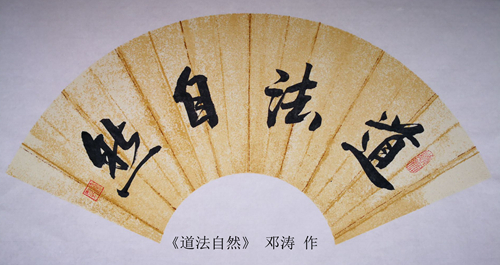 道法自然
《道法自然》 邓涛 作